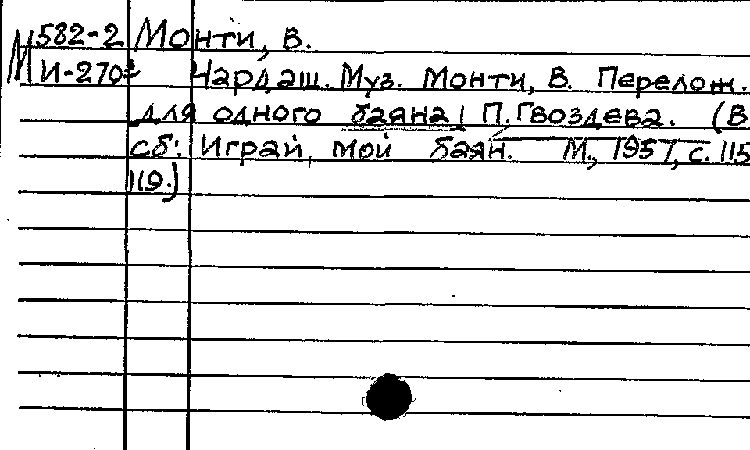 М 582-2 Монти, В.
И-270² Чардаш. Муз. Монти, В. Перелож.
для одного баяна П. Гвоздева. (В
сб: Играй, мой баян. М., 1957, с. 115
119.)